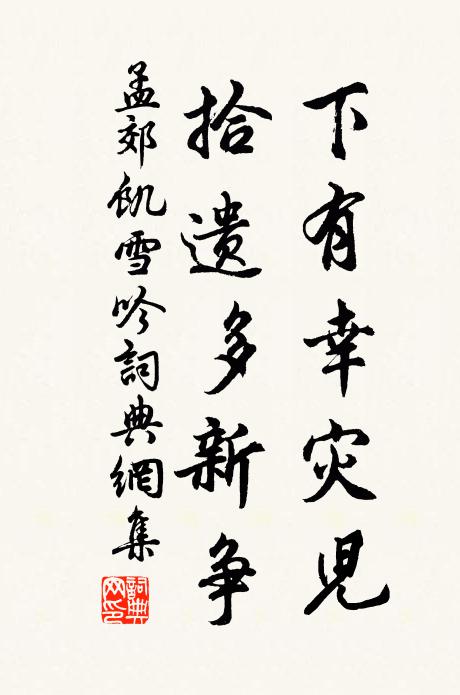 下有幸灾児
拾遗多新争
孟郊飢雪吟詞典網集
詞典网印